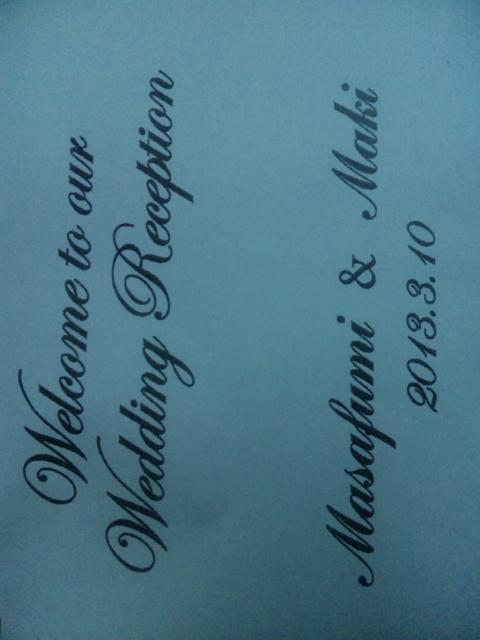 Welcome to our
Wedding Reception
Masafumi & Maki
2013.3.10